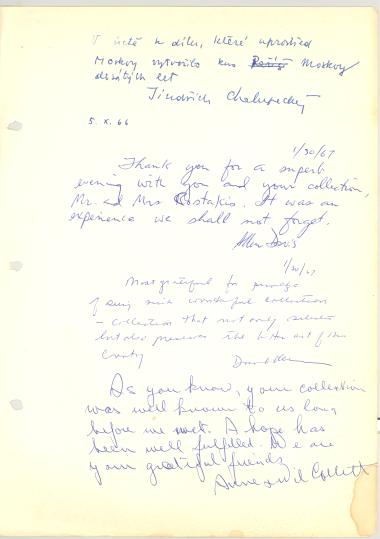 V úctě k dílu, které uprostřed
Moskvy vytvořilo kus Moskvy
desátých let
Jindřich Chalupecký
5. X. 66
1/30/67
Thank you for a superb
evening with you and your collection,
Mr. and Mrs Costakis. It was an
experience we shall not forget.
Allen Davis
1/30/67
Most grateful for privilege
of seeing such wonderful collection
– collection that not only
but also preserves the art of
Country
As you know, your collection
was well known to us long
before we met. A hope has
been well fulfilled. We are
your grateful friends,
Anne and Collett